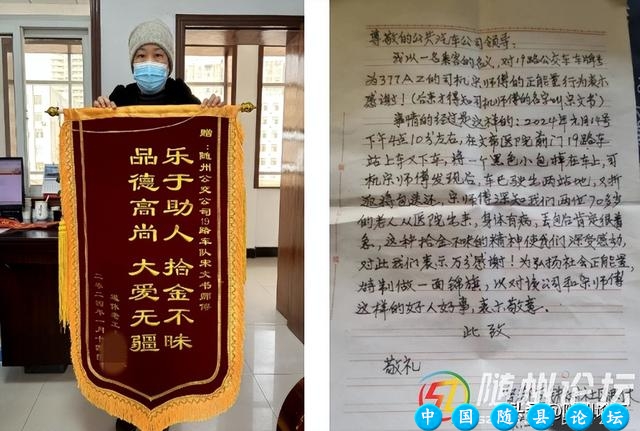 赠：随州公交公司19路车队宋文书师傅
乐于助人 拾金不昧
品德高尚 大爱无疆
退休老工
二零二四年一月十四日
尊敬的公共汽车公司领导：
我以一名乘客的名义，对19路公交车车牌号
为377AZ的司机宋师傅的正能量行为表示
感谢！（后来才得知司机师傅的名字叫宋文书）
事情的经过是这样的：2024年元月14号
下午4点10分左右，在文帝医院前门19路车
站上车又下车，将一个黑色小包掉车上，司
机宋师傅发现后，车已驶出两站地，又折
返将包送还，宋师傅深知我们两位70多岁
的老人从医院出来，身体有病，丢包后肯定很着
急，这种拾金不昧的精神使我们深受感动，
对此我们表示万分感谢！为弘扬社会正能量
特制做一面锦旗，以对该公司和宋师傅
这样的好人好事，表示敬意。
此致
敬礼
随州论坛
中国随县论坛